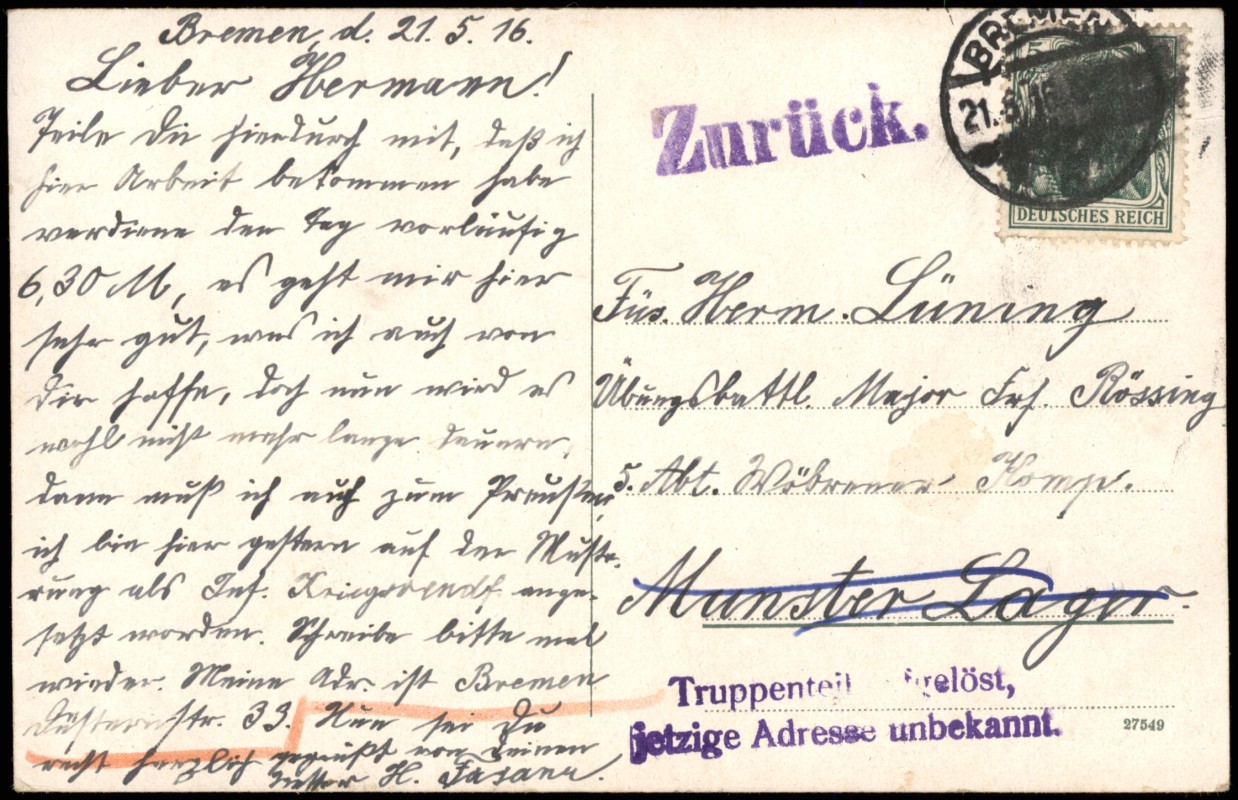 Bremen, d. 21. 5. 16.
Lieber Hermann!
Teile Dir hierdurch mit, daß ich
hier Arbeit bekommen habe
verdiene den Tag vorläufig
6,30 M, es geht mir hier
sehr gut, was ich auch von
Dir hoffe, doch nun wird es
wohl nicht mehr lange dauern,
dann muß ich auch zum Preußen,
ich bin hier gestern auf der Muste-
rung als Inf. ange-
setzt worden. Schreibe bitte mal
wieder. Meine Adr. ist Bremen
str. 39. Nun sei Du
recht herzlich gegrüßt von Deinen
Vetter H. Fasana.
Zurück.
BREMEN
21. 16
DEUTSCHES REICH
Füs. Herm. Lüning
Übungsbattl. Major Frh. Rössing
5. Abt. Komp.
Munster Lager.
Truppenteil fgelöst,
jetzige Adresse unbekannt.
27549